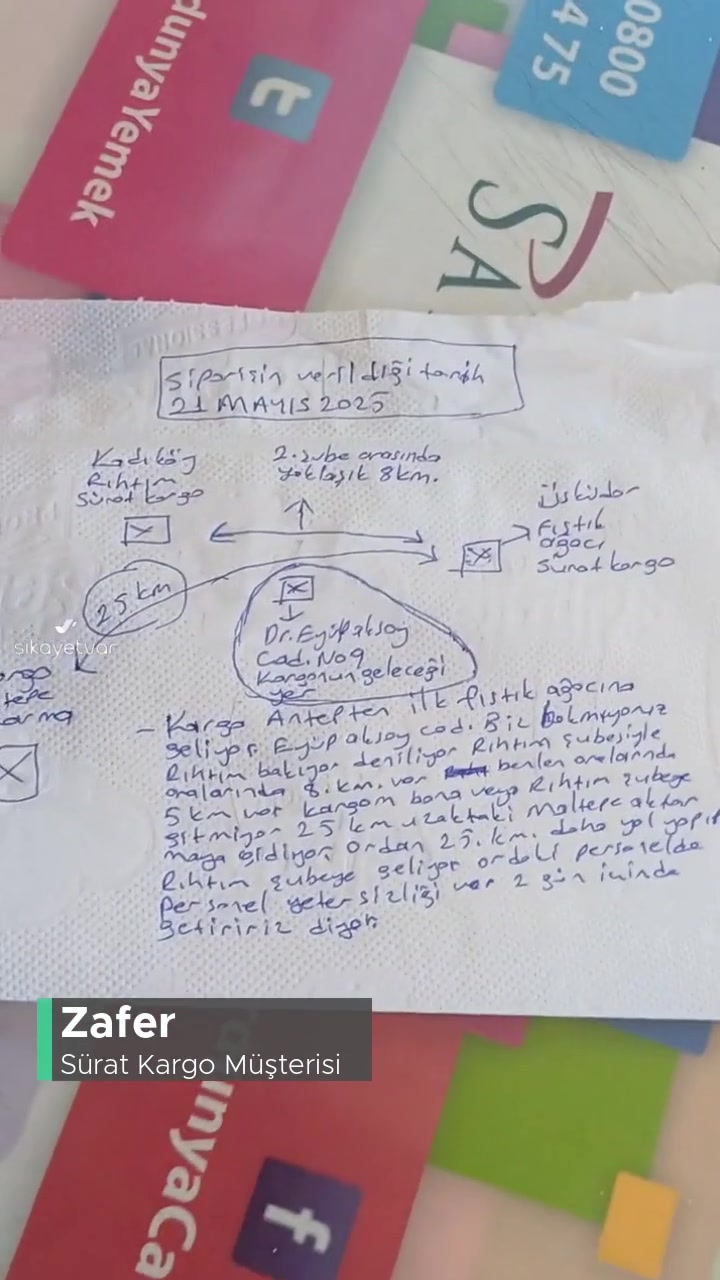 dunyaYemek
0800
475
SA
Siparişin verildiği tarih
21 MAYIS 2025
Kadıköy
Rıhtım
Sürat kargo
2. şube arasında
yaklaşık 8 km.
Üsküdar
Fıstık
ağacı
Sürat kargo
25 km
Dr. Eyüp aksoy
Cad. No 9
Kargonun geleceği
yer
şikayetvar
argo
tepe
arma
- Kargo Antepten ilk fıstık ağacına
geliyor. Eyüp aksoy cad. Biz bakmıyoruz
Rıhtım bakıyor deniliyor Rıhtım şubesiyle
aralarında 8. km. var benlen aralarında
5 km var kargom bana veya Rıhtım şubeye
gitmiyor 25 km uzaktaki Maltepe aktar
maya gidiyor. ordan 25. km. daha yol yapıp
Rıhtım şubeye geliyor ordaki personelde
Personel yetersizliği var 2 gün içinde
getiririz diyor.
Zafer
Sürat Kargo Müşterisi
unyaCa